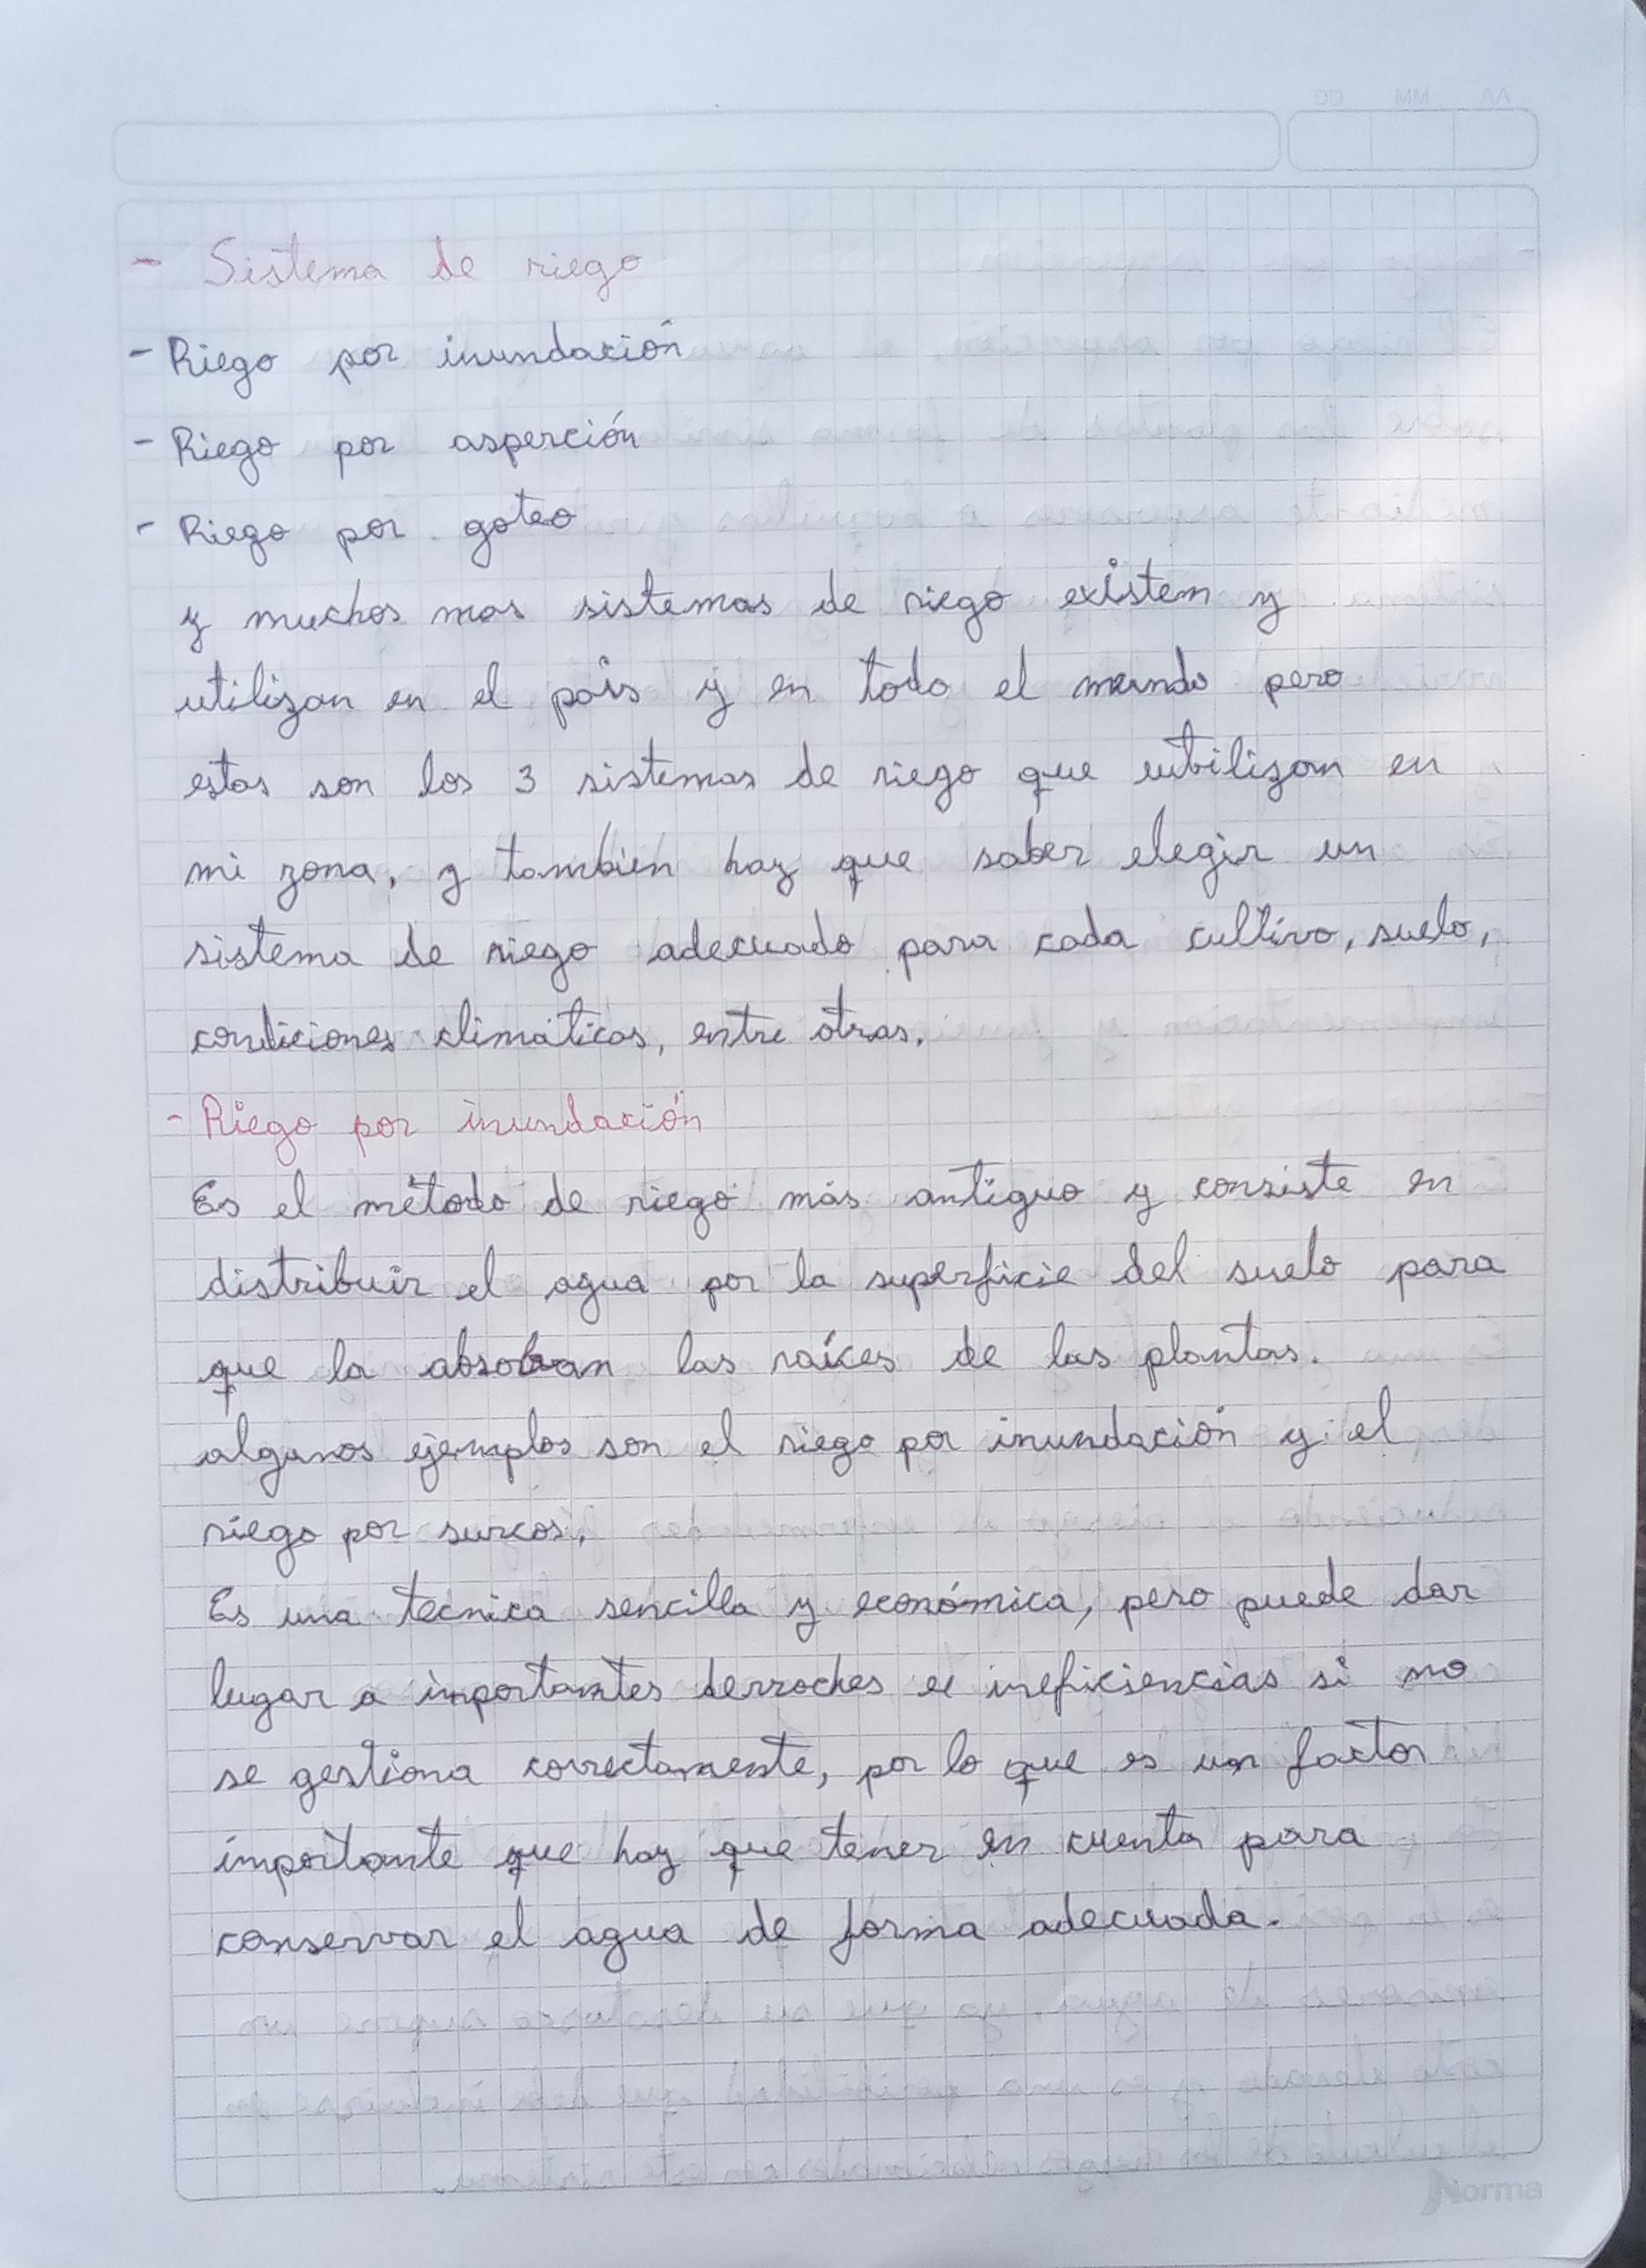 DD MM AA
- Sistema de riego
- Riego por inundación
- Riego por asperción
- Riego por goteo
y muchos mas sistemas de riego existem y
utilizan en el país y en todo el mundo pero
estas son los 3 sistemas de riego que utilizan en
mi zona, y tambien hay que saber elegir un
sistema de riego adecuado para cada cultivo, suelo,
condiciones climáticas, entre otras.
- Riego por inundación
Es el método de riego más antiguo y consiste en
distribuir el agua por la superficie del suelo para
que la absoban las raíces de las plantas.
algunos ejemplos son el riego por inundación y el
riego por surcos.
Es una tecnica sencilla y económica, pero puede dar
lugar a importantes derroches e ineficiencias si no
se gestiona correctamente, por lo que es un factor
importante que hay que tener en cuenta para
conservar el agua de forma adecuada.
Norma